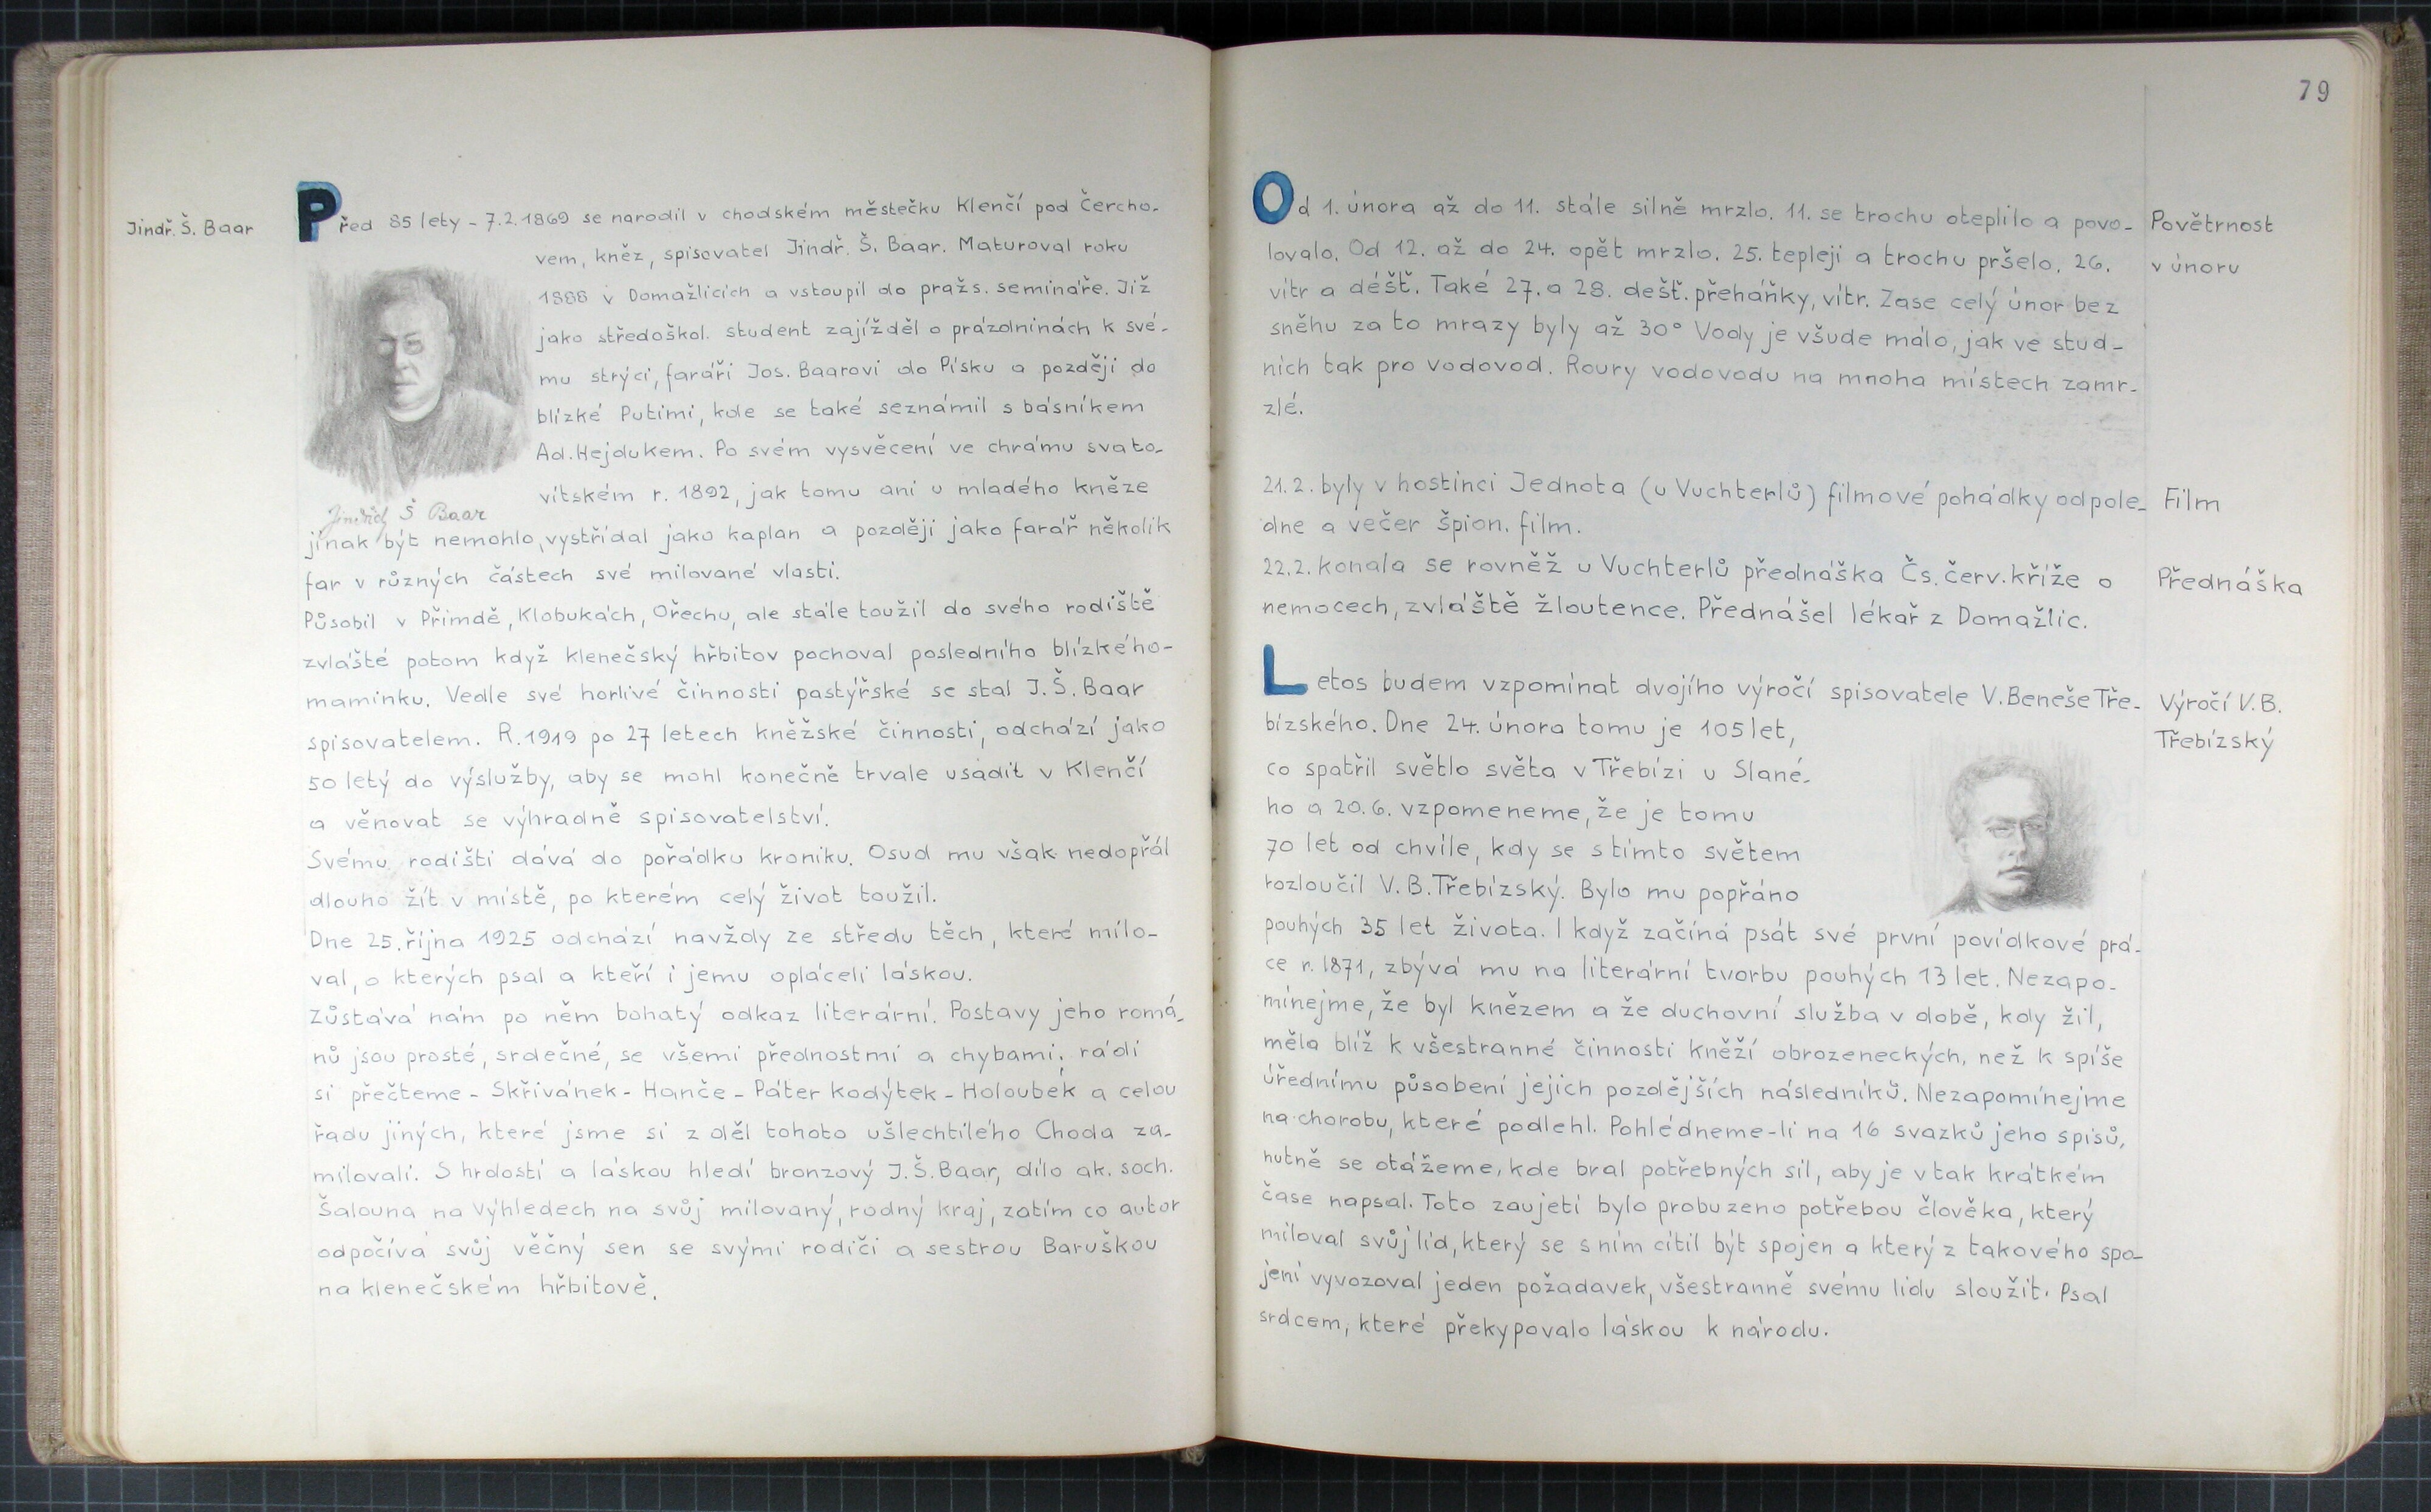 Jindř. Š. Baar
Před 85 lety - 7.2.1869 se narodil v chodském městečku Klenčí pod Čercho-
vem, kněz, spisovatel Jindř. Š. Baar. Maturoval roku
1888 v Domažlicích a vstoupil do pražs. semináře. Již
jako středoškol. student zajížděl o prázdninách k své-
mu strýci, faráři Jos. Baarovi do Písku a později do
blízké Putimi, kde se také seznámil s básníkem
Ad. Hejdukem. Po svém vysvěcení ve chrámu svato-
vítském r. 1892, jak tomu ani u mladého kněze
Jindřich Š Baar
jinak být nemohlo, vystřídal jako kaplan a později jako farář několik
far v různých částech své milované vlasti.
Působil v Přimdě, Klobukách, Ořechu, ale stále toužil do svého rodiště
zvláště potom když klenečský hřbitov pochoval posledního blízkého-
maminku. Vedle své horlivé činnosti pastýřské se stal J. Š. Baar
spisovatelem. R. 1919 po 27 letech kněžské činnosti, odchází jako
50 letý do výslužby, aby se mohl konečně trvale usadit v Klenčí
a věnovat se výhradně spisovatelství.
Svému rodišti dává do pořádku kroniku. Osud mu však nedopřál
dlouho žít v místě, po kterém celý život toužil.
Dne 25. října 1925 odchází navždy ze středu těch, které milo-
val, o kterých psal a kteří i jemu opláceli láskou.
Zůstává nám po něm bohatý odkaz literární. Postavy jeho romá-
nů jsou prosté, srdečné, se všemi přednostmi a chybami; rádi
si přečteme - Skřivánek - Hanče - Páter Kodýtek - Holoubek a celou
řadu jiných, které jsme si z děl tohoto ušlechtilého Choda za-
milovali. S hrdostí a láskou hledí bronzový J. Š. Baar, dílo ak. soch.
Šalouna na Výhledech na svůj milovaný, rodný kraj, zatím co autor
odpočívá svůj věčný sen se svými rodiči a sestrou Baruškou
na klenečském hřbitově.
79
Od 1. února až do 11. stále silně mrzlo. 11. se trochu oteplilo a povo-
lovalo. Od 12. až do 24. opět mrzlo. 25. tepleji a trochu pršelo. 26.
vítr a déšť. Také 27. a 28. dešť. přeháňky, vítr. Zase celý únor bez
sněhu za to mrazy byly až 30° Vody je všude málo, jak ve stud-
ních tak pro vodovod. Roury vodovodu na mnoha místech zamr-
zlé.
Povětrnost
v únoru
21. 2. byly v hostinci Jednota (u Vuchterlů) filmové pohádky odpole-
dne a večer špion. film.
Film
22. 2. konala se rovněž u Vuchterlů přednáška Čs. červ. kříže o
nemocech, zvláště žloutence. Přednášel lékař z Domažlic.
Přednáška
Letos budem vzpomínat dvojího výročí spisovatele V. Beneše Tře-
bízského. Dne 24. února tomu je 105 let,
co spatřil světlo světa v Třebízi u Slané-
ho a 20. 6. vzpomeneme, že je tomu
70 let od chvíle, kdy se s tímto světem
rozloučil V. B. Třebízský. Bylo mu popřáno
pouhých 35 let života. I když začíná psát své první povídkové prá-
ce r. 1871, zbývá mu na literární tvorbu pouhých 13 let. Nezapo-
mínejme, že byl knězem a že duchovní služba v době, kdy žil,
měla blíž k všestranné činnosti kněží obrozeneckých, než k spíše
úřednímu působení jejich pozdějších následníků. Nezapomínejme
na chorobu, které podlehl. Pohlédneme-li na 16 svazků jeho spisů,
nutně se otážeme, kde bral potřebných sil, aby je v tak krátkém
čase napsal. Toto zaujetí bylo probuzeno potřebou člověka, který
miloval svůj lid, který se s ním cítil být spojen a který z takového spo-
jení vyvozoval jeden požadavek, všestranně svému lidu sloužit. Psal
srdcem, které překypovalo láskou k národu.
Výročí V. B.
Třebízský